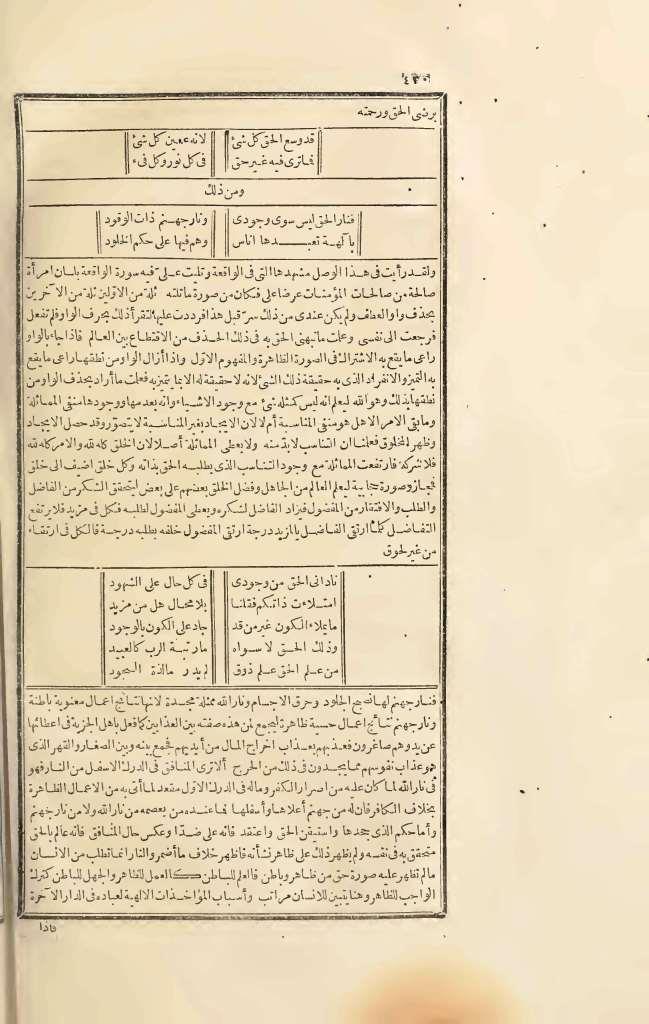 ٤٣٠
برضى الحق ورحمته
قد وسع الحق كل شئ لانه عين كل شئ
فما ترى فيه غير حق فى كل نور وكل فىء
ومن ذلك
فنار الحق ليس سوى وجودى ونار جهنم ذات الوقود
بآلهة تعبدها اناس وهم فيها على حكم الخلود
ولقد رأيت فى هذا الوصل مشهدها التى فى الواقعة وتليت على فيه سورة الواقعة بلسان امرأة
صالحة من صالحات المؤمنات عرضا على فكان من صورة ما تلته ثلة من الاولين ثلة من الآخرين
بحذف واو العطف ولم يكن عندى من ذلك سرّ قبل هذا فرددت عليها لتقرأ ذلك بحرف الواو فلم تفعل
فرجعت الى نفسى وعلمت ما تبهنى الحق به فى ذلك الحذف من الاقتطاع بين العالم فاذا جاء بالواو
راعى ما يقع به الاشتراك فى الصورة الظاهرة والمفهوم الاول واذا أزال الواو من نطقها راعى ما يقع
به التميز والانفراد الذى به حقيقة ذلك الشئ لانه لا حقيقة له الا بما تميز به فعلمت ما أراد بحذف الواو من
نطقها بذلك وهو الله ليعلم انه ليس كمثله شئ مع وجود الاشياء وانه بعدمها ووجودها منفى المماثلة
وما بقى الامر الاهل هو منفى المناسبة أم لا لان الايجاد بغير المناسبة لا يتصور وقد حصل الايجاد
وظهر المخلوق فعلمنا ان التناسب لا بدّ منه ولا يعطى المماثلة أصلا لان الخلق كله لله والامر كله لله
فلا شركة فارتفعت المماثلة مع وجود التناسب الذى يطلبه الحق بذاته وكل خلق اضيف الى خلق
فمجاز وصورة حجابية ليعلم العالم من الجاهل وفضل الخلق بعضهم على بعض ليتحقق الشكر من الفاضل
والطلب والافتقار من المفضول فيزاد الفاضل لشكره ويعطى المفضول لطلبه فكل فى مزيد فلا يرتفع
التفاضل كلما ارتقى الفاضل بالمزيد درجة ارتقى المفضول خلفه يطلبه درجة فالكل فى ارتقاء
من غير لحوق
نادانى الحق من وجودى فى كل حال على الشهود
امتلاءت ذاتكم فقلنا بلا محال هل من مزيد
ما يملاء الكون غير من قد جاد على الكون بالوجود
وذلك الحق لا سواه ما رتبة الرب كالعبيد
من علم الحق علم ذوق لم يدر ما لذة السجود
فنار جهنم لها نضج الجلود وحرق الاجسام ونار الله ممثلة مجسدة لانها نتائج اعمال معنوية باطنة
ونار جهنم نتائج اعمال حسية ظاهرة ليجمع لمن هذه صفته بين العذابين كما فعل باهل الجزية فى اعطائها
عن يد وهم صاغرون فعذبهم بعذاب اخراج المال من أيديهم فجمع بينه وبين الصغار والقهر الذى
هو عذاب نفوسهم مما يجدون فى ذلك من الحرج ألا ترى المنافق فى الدرك الاسفل من النار فهو
فى نار الله لما كان عليه من اصرار الكفر وما له فى الدرك الاول مقعد لما أتى به من الاعمال الظاهرة
بخلاف الكافر فان له من جهنم أعلاها وأسفلها فما عنده من يعصمه من نار الله ولا من نار جهنم
وأما حكم الذى جحدها واستيقن الحق واعتقد فانه على ضدّ هذا وعكس حال المنافق فانه عالم بالحق
متحقق به فى نفسه ولم يظهر ذلك على ظاهر نشأته فاظهر خلاف ما أضمر والنار انما تطلب من الانسان
ما لم تظهر عليه صورة حق من ظاهر وباطن فالعلم للباطن كالعمل للظاهر والجهل للباطن كترك
الواجب للظاهر وهنا يتبين للانسان مراتب وأسباب المؤاخذات الالهية لعباده فى الدار الآخرة
فاذا